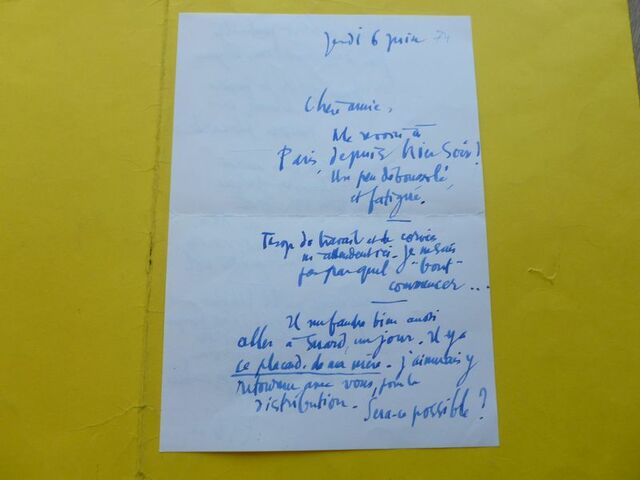 Jeudi 6 juin 74
Chère amie,
Me revoici à
Paris, depuis hier soir !
Un peu déboussolé,
et fatigué.
Trop de travail et de corvée
m'attendent ici. Je ne sais
pas par quel "bout"
commencer...
Il me faudra bien aussi
aller à un jour. Il y a
ce placard de ma mère. J'aimerais y
retourner avec vous, pour la
distribution. Sera-ce possible ?